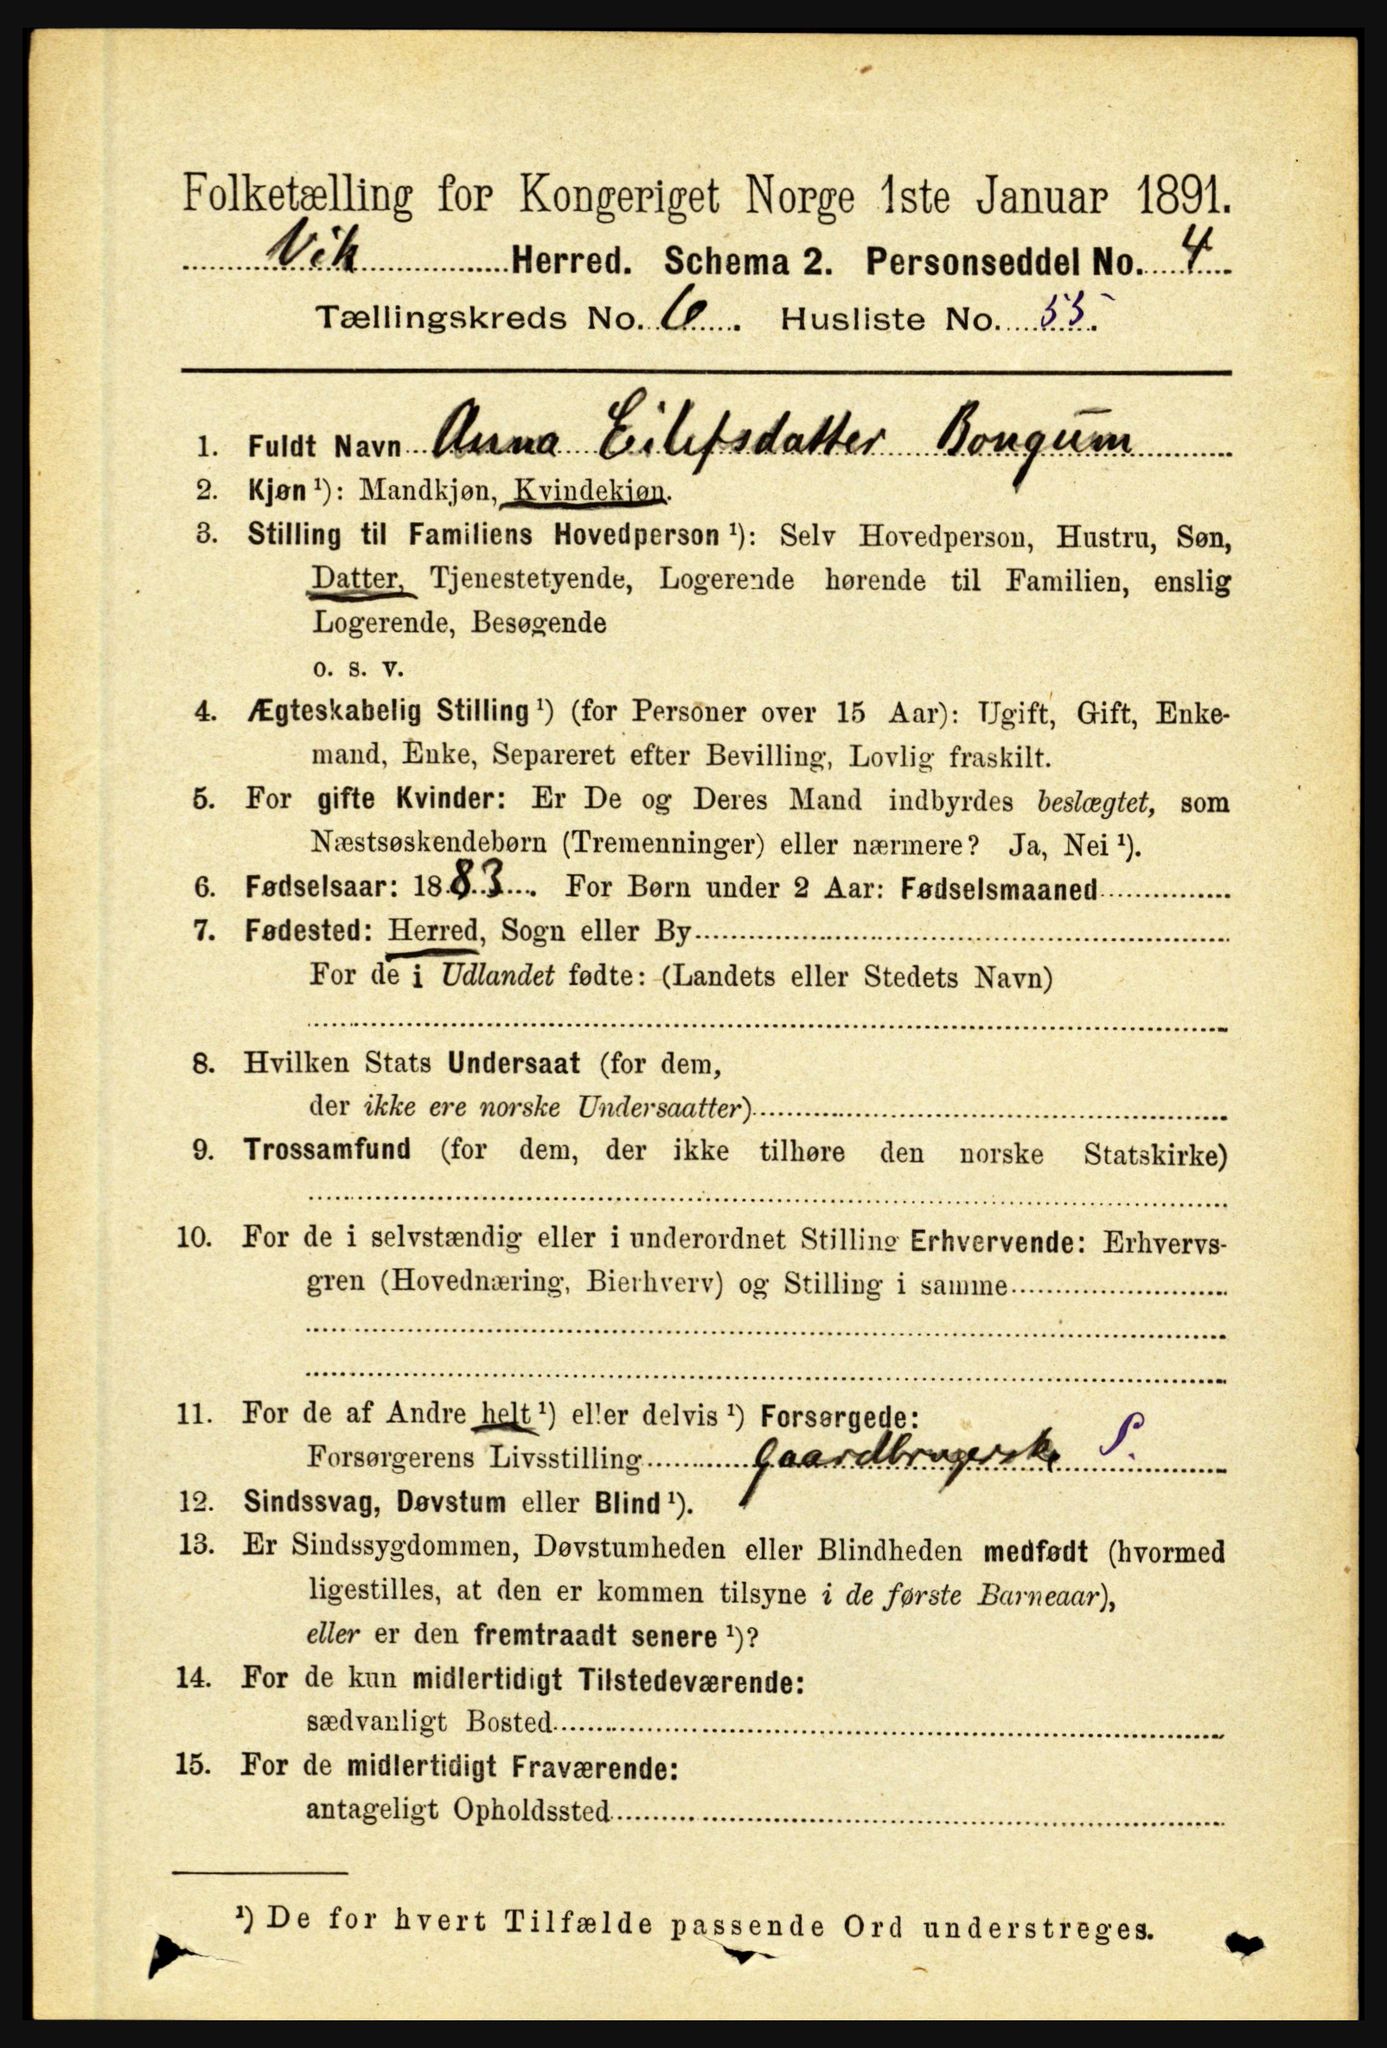 Folketælling for Kongeriget Norge 1ste Januar 1891.
Vik Herred. Schema 2. Personseddel No. 4
Tællingskreds No. 6. Husliste No. 55.
1. Fuldt Navn Anna Eilefsdatter Bongum
2. Kjøn ¹): Mandkjøn, Kvindekjøn.
3. Stilling til Familiens Hovedperson ¹): Selv Hovedperson, Hustru, Søn,
Datter, Tjenestetyende, Logerende hørende til Familien, enslig
Logerende, Besøgende
o. s. v.
4. Ægteskabelig Stilling ¹) (for Personer over 15 Aar): Ugift, Gift, Enke-
mand, Enke, Separeret efter Bevilling, Lovlig fraskilt.
5. For gifte Kvinder: Er De og Deres Mand indbyrdes beslægtet, som
Næstsøskendebørn (Tremenninger) eller nærmere? Ja, Nei ¹).
6. Fødselsaar: 1883. For Børn under 2 Aar: Fødselsmaaned
7. Fødested: Herred, Sogn eller By
For de i Udlandet fødte: (Landets eller Stedets Navn)
8. Hvilken Stats Undersaat (for dem,
der ikke ere norske Undersaatter)
9. Trossamfund (for dem, der ikke tilhøre den norske Statskirke)
10. For de i selvstændig eller i underordnet Stilling Erhvervende: Erhvervs-
gren (Hovednæring, Bierhverv) og Stilling i samme
11. For de af Andre helt ¹) eller delvis ¹) Forsørgede:
Forsørgerens Livsstilling Gaardbrugerske S.
12. Sindssvag, Døvstum eller Blind ¹).
13. Er Sindssygdommen, Døvstumheden eller Blindheden medfødt (hvormed
ligestilles, at den er kommen tilsyne i de første Barneaar),
eller er den fremtraadt senere ¹)?
14. For de kun midlertidigt Tilstedeværende:
sædvanligt Bosted
15. For de midlertidigt Fraværende:
antageligt Opholdssted
¹) De for hvert Tilfælde passende Ord understreges.